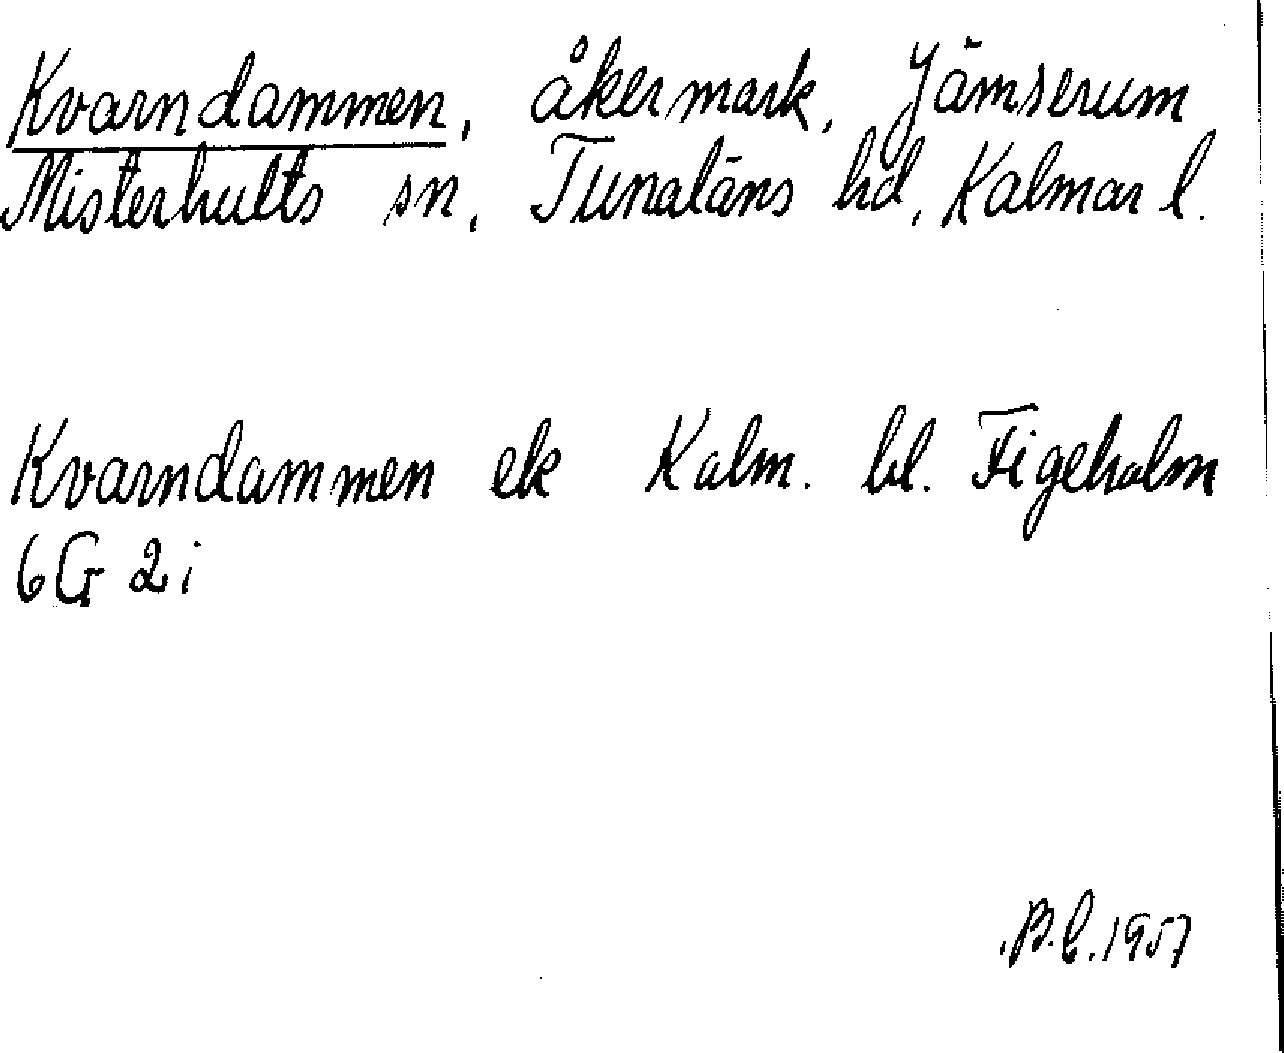 Kvarndammen, åkermark, Jämserum
Misterhults sn, Tunaläns hd, Kalmar l.
Kvarndammen ek Kalm. bl. Figeholm
6G 2i
B.l. 1957